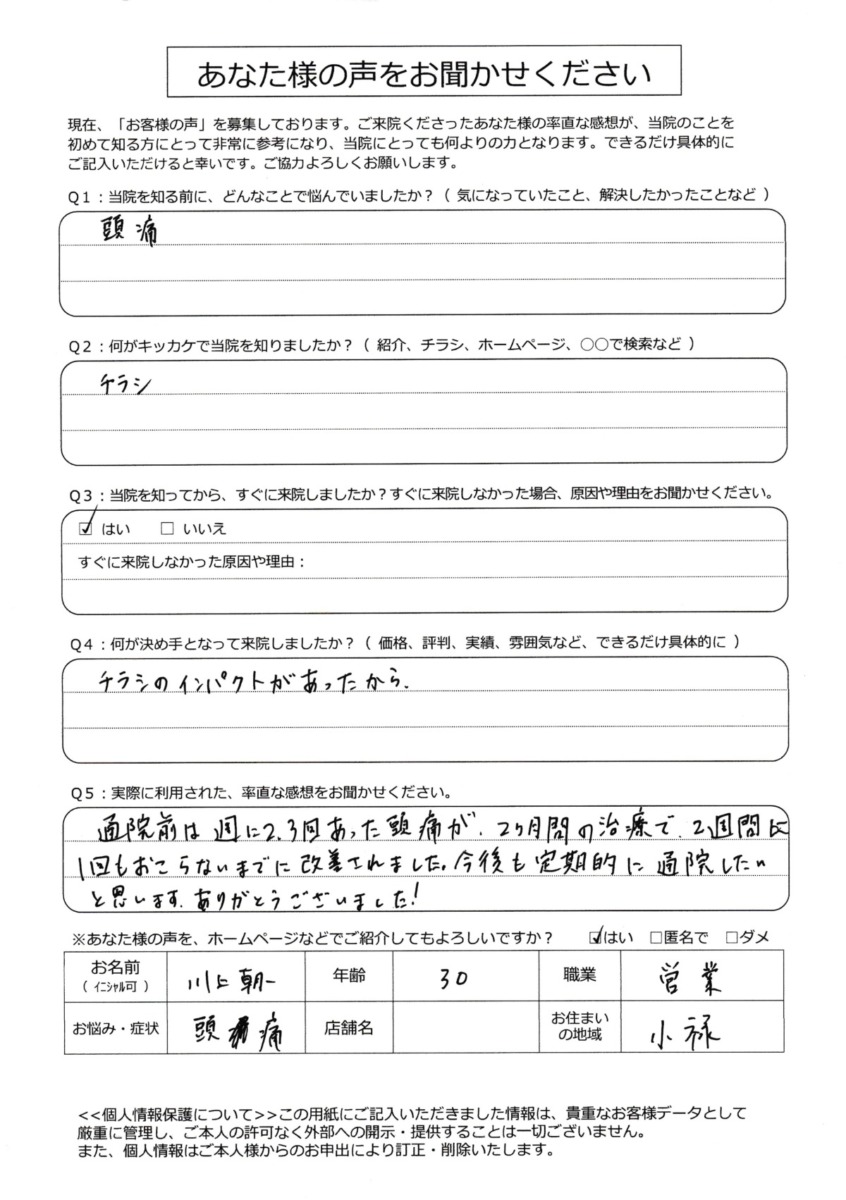 あなた様の声をお聞かせください
現在、「お客様の声」を募集しております。ご来院くださったあなた様の率直な感想が、当院のことを
初めて知る方にとって非常に参考になり、当院にとっても何よりの力となります。できるだけ具体的に
ご記入いただけると幸いです。ご協力よろしくお願いします。
Q1:当院を知る前に、どんなことで悩んでいましたか?( 気になっていたこと、解決したかったことなど )
頭痛
Q2:何がキッカケで当院を知りましたか?( 紹介、チラシ、ホームページ、○○で検索など )
チラシ
Q3:当院を知ってから、すぐに来院しましたか?すぐに来院しなかった場合、原因や理由をお聞かせください。
☑ はい □ いいえ
すぐに来院しなかった原因や理由:
Q4:何が決め手となって来院しましたか?( 価格、評判、実績、雰囲気など、できるだけ具体的に )
チラシのインパクトがあったから.
Q5:実際に利用された、率直な感想をお聞かせください。
通院前は週に2.3回あった頭痛が、2ヶ月間の治療で、2週間に
1回もおこらないまでに改善されました。今後も定期的に通院したい
と思います。ありがとうございました!
※あなた様の声を、ホームページなどでご紹介してもよろしいですか? ☑はい □匿名で □ダメ
お名前 川上朝一 年齢 30 職業 営業
( イニシャル可 )
お悩み・症状 頭痛 店舗名 お住まいの地域 小禄
<<個人情報保護について>>この用紙にご記入いただきました情報は、貴重なお客様データとして
厳重に管理し、ご本人の許可なく外部への開示・提供することは一切ございません。
また、個人情報はご本人様からのお申出により訂正・削除いたします。